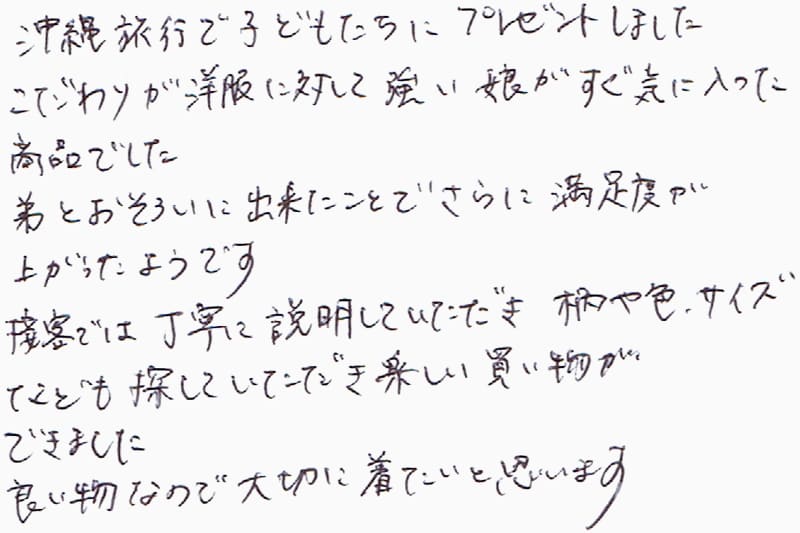 沖縄旅行で子どもたちに プレゼントしました
こだわりが洋服に対して 強い 娘が すぐ気に入った
商品でした
弟とおそろいに出来たことでさらに 満足度が
上がったようです
接客では 丁寧に 説明していただき 柄や色、サイズ
なども 探していただき楽しい 買い物が
できました
良い物なので大切に着たいと思います